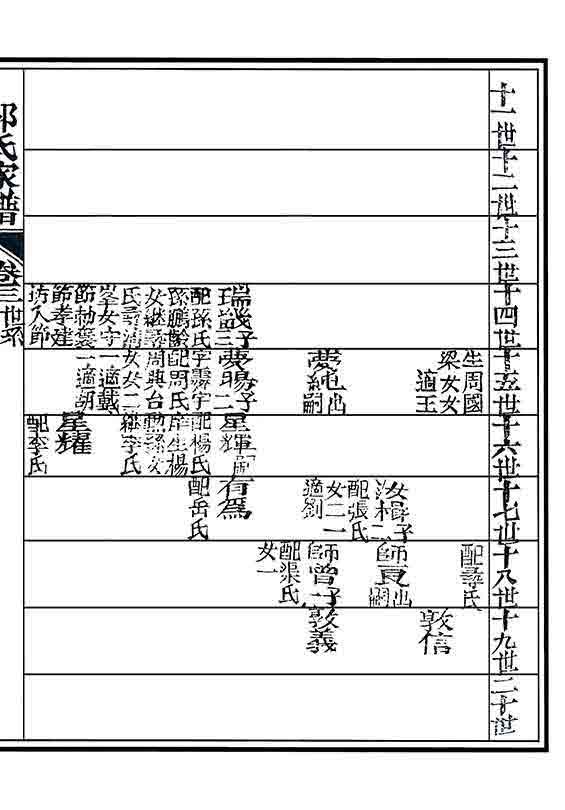 十一世
十二世
十三世
十四世
十五世
十六世
十七世
十八世
十九世
二十世
瑞 子三
配孫氏
孫鵬齡
女繼
氏壽浦
女守
節
節孝建
坊入節
生周國
梁女女
適王
夢純出嗣
夢賜子二
字 宇
配周氏
周典台
女女二
一適戴
一適胡
星輝嗣
配楊氏
庠生楊
女
繼李氏
星耀
配李氏
汝楫子二
配張氏
女二一
適劉
有爲
配岳氏
配 氏
師 出嗣
師曾子一
配渠氏
女一
敦信
敦義
氏家譜
卷三世系